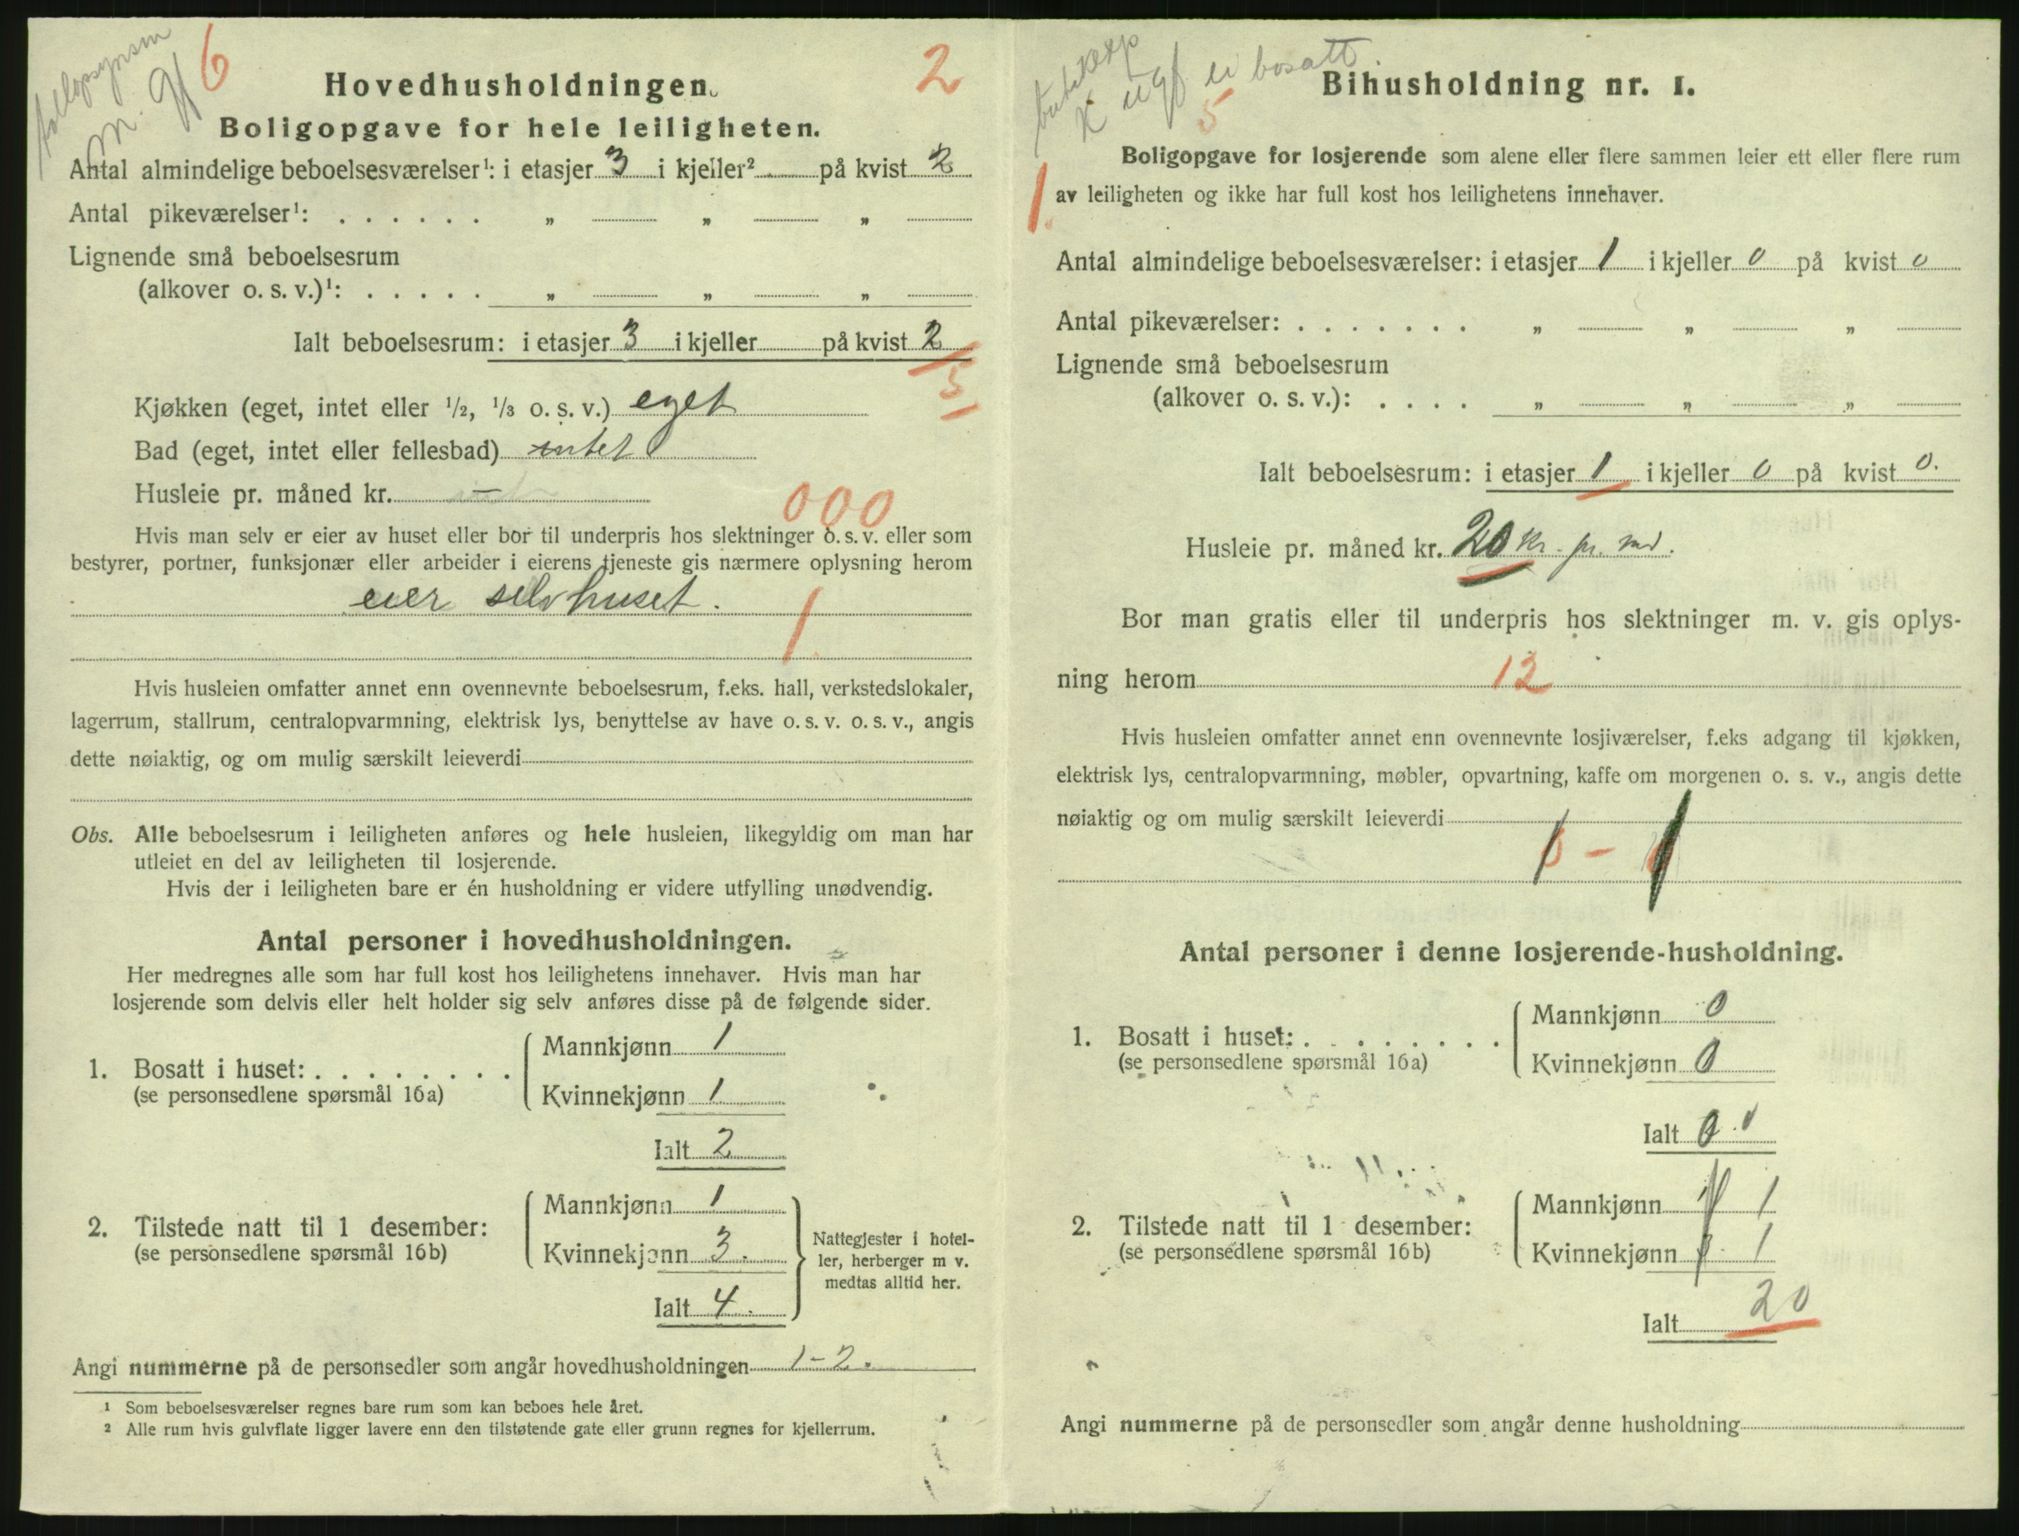 m. gf 6
2
Hovedhusholdningen.
Boligopgave for hele leiligheten.
Antal almindelige beboelsesværelser¹: i etasjer 3 i kjeller² - på kvist 2
Antal pikeværelser¹: . . . . . . „ „ „
Lignende små beboelsesrum
(alkover o. s. v.)¹: . . . . . „ „ „
Ialt beboelsesrum: i etasjer 3 i kjeller på kvist 2
5
Kjøkken (eget, intet eller ½, ⅓ o. s. v.) eget
Bad (eget, intet eller fellesbad) intet
Husleie pr. måned kr. -
000
Hvis man selv er eier av huset eller bor til underpris hos slektninger o. s. v. eller som
bestyrer, portner, funksjonær eller arbeider i eierens tjeneste gis nærmere oplysning herom
eier selv huset.
1.
Hvis husleien omfatter annet enn ovennevnte beboelsesrum, f.eks. hall, verkstedslokaler,
lagerrum, stallrum, centralopvarmning, elektrisk lys, benyttelse av have o. s. v. o. s. v., angis
dette nøiaktig, og om mulig særskilt leieverdi
Obs. Alle beboelsesrum i leiligheten anføres og hele husleien, likegyldig om man har
utleiet en del av leiligheten til losjerende.
Hvis der i leiligheten bare er én husholdning er videre utfylling unødvendig.
Antal personer i hovedhusholdningen.
Her medregnes alle som har full kost hos leilighetens innehaver. Hvis man har
losjerende som delvis eller helt holder sig selv anføres disse på de følgende sider.
1. Bosatt i huset: . . . . . . . .
(se personsedlene spørsmål 16a)
Mannkjønn 1
Kvinnekjønn 1
Ialt 2
2. Tilstede natt til 1 desember:
(se personsedlene spørsmål 16b)
Mannkjønn 1
Kvinnekjønn 3.
Ialt 4.
Nattegjester i hotel-
ler, herberger m v.
medtas alltid her.
Angi nummerne på de personsedler som angår hovedhusholdningen 1-2.
¹ Som beboelsesværelser regnes bare rum som kan beboes hele året.
² Alle rum hvis gulvflate ligger lavere enn den tilstøtende gate eller grunn regnes for kjellerrum.
K ugf ei bosatt.
5
1.
Bihusholdning nr. 1.
Boligopgave for losjerende som alene eller flere sammen leier ett eller flere rum
av leiligheten og ikke har full kost hos leilighetens innehaver.
Antal almindelige beboelsesværelser: i etasjer 1 i kjeller 0 på kvist 0
Antal pikeværelser: . . . . . . . „ „ „
Lignende små beboelsesrum
(alkover o. s. v.): . . . . „ „ „
Ialt beboelsesrum: i etasjer 1 i kjeller 0 på kvist 0.
Husleie pr. måned kr. 20 kr. pr. md.
Bor man gratis eller til underpris hos slektninger m. v. gis oplys-
ning herom 12
Hvis husleien omfatter annet enn ovennevnte losjiværelser, f.eks adgang til kjøkken,
elektrisk lys, centralopvarmning, møbler, opvartning, kaffe om morgenen o. s. v., angis dette
nøiaktig og om mulig særskilt leieverdi
Antal personer i denne losjerende-husholdning.
1. Bosatt i huset: . . . . . . . .
(se personsedlene spørsmål 16a)
Mannkjønn 0
Kvinnekjønn 0
Ialt 0
2. Tilstede natt til 1 desember:
(se personsedlene spørsmål 16b)
Mannkjønn 1
Kvinnekjønn 1
Ialt 20
Angi nummerne på de personsedler som angår denne husholdning